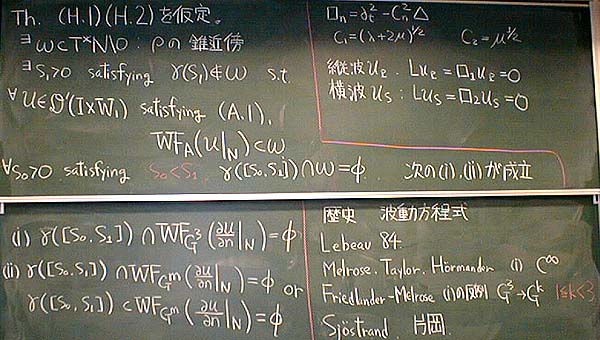 Th. (H.1)(H.2)を仮定。
∃ω⊂T*N\0 : ρの錐近傍
∃S₁>0 satisfying γ(S₁)∉ω s.t.
∀u∈𝒟'(I×W₁) satisfying (A.1),
WF_A(u|_N)⊂ω
∀S₀>0 satisfying S₀<S₁, γ([S₀,S₁])∩ω=ϕ. 次の(i),(ii)が成立
□ₙ=∂ₜ²-Cₙ²△
C₁=(λ+2μ)^{1/2} C₂=μ^{1/2}
縦波 u_ℓ : Lu_ℓ=□₁u_ℓ=0
横波 u_S : Lu_S=□₂u_S=0
(i) γ([S₀,S₁])∩WF_{G³}(∂u/∂n|_N)=ϕ
(ii) γ([S₀,S₁])∩WF_{G^m}(∂u/∂n|_N)=ϕ or
γ([S₀,S₁])⊂WF_{G^m}(∂u/∂n|_N)=ϕ
歴史 波動方程式
Lebeau 84.
Melrose, Taylor, Hörmander (i) C^∞
Friedlander-Melrose (i)の反例 G³→G^k 1≤k<3
Sjöstrand. 片岡.